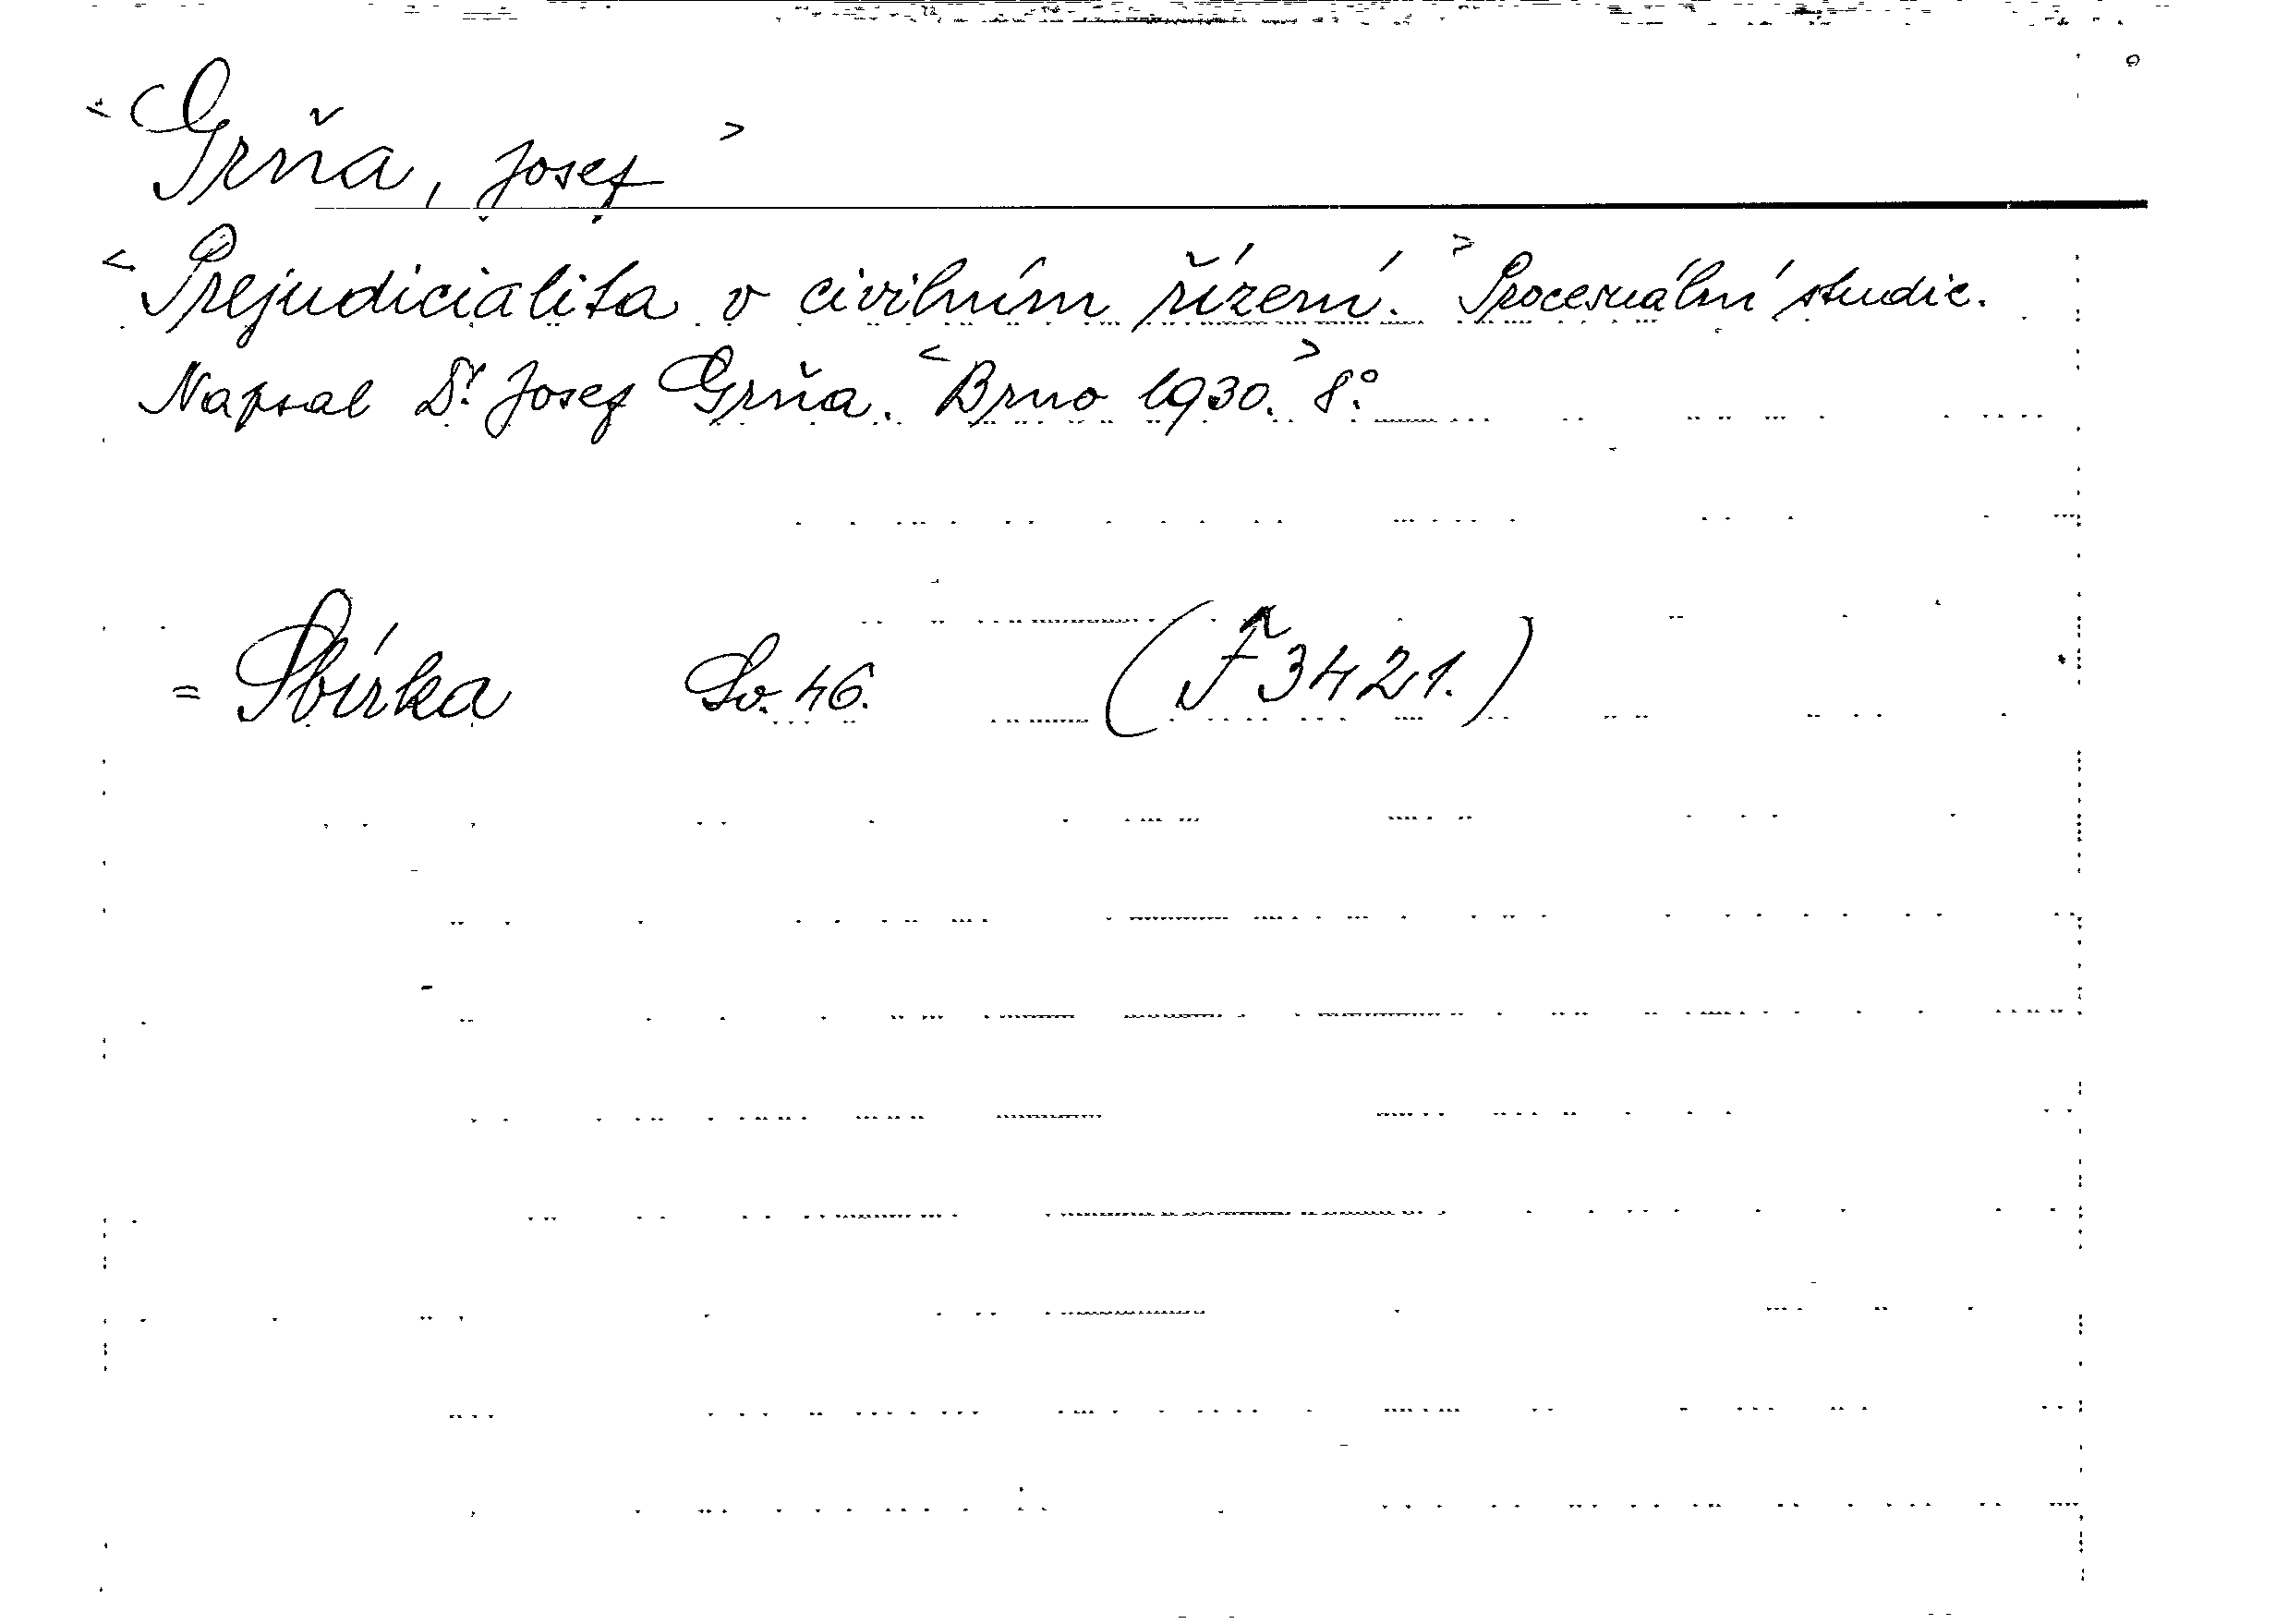 <Grňa, Josef>
<Prejudicialita v civilním řízení.> Procesuální studie.
Napsal Dr. Josef Grňa. <Brno 1930.> 8°.
= Sbírka Sv. 46. (F 3421.)